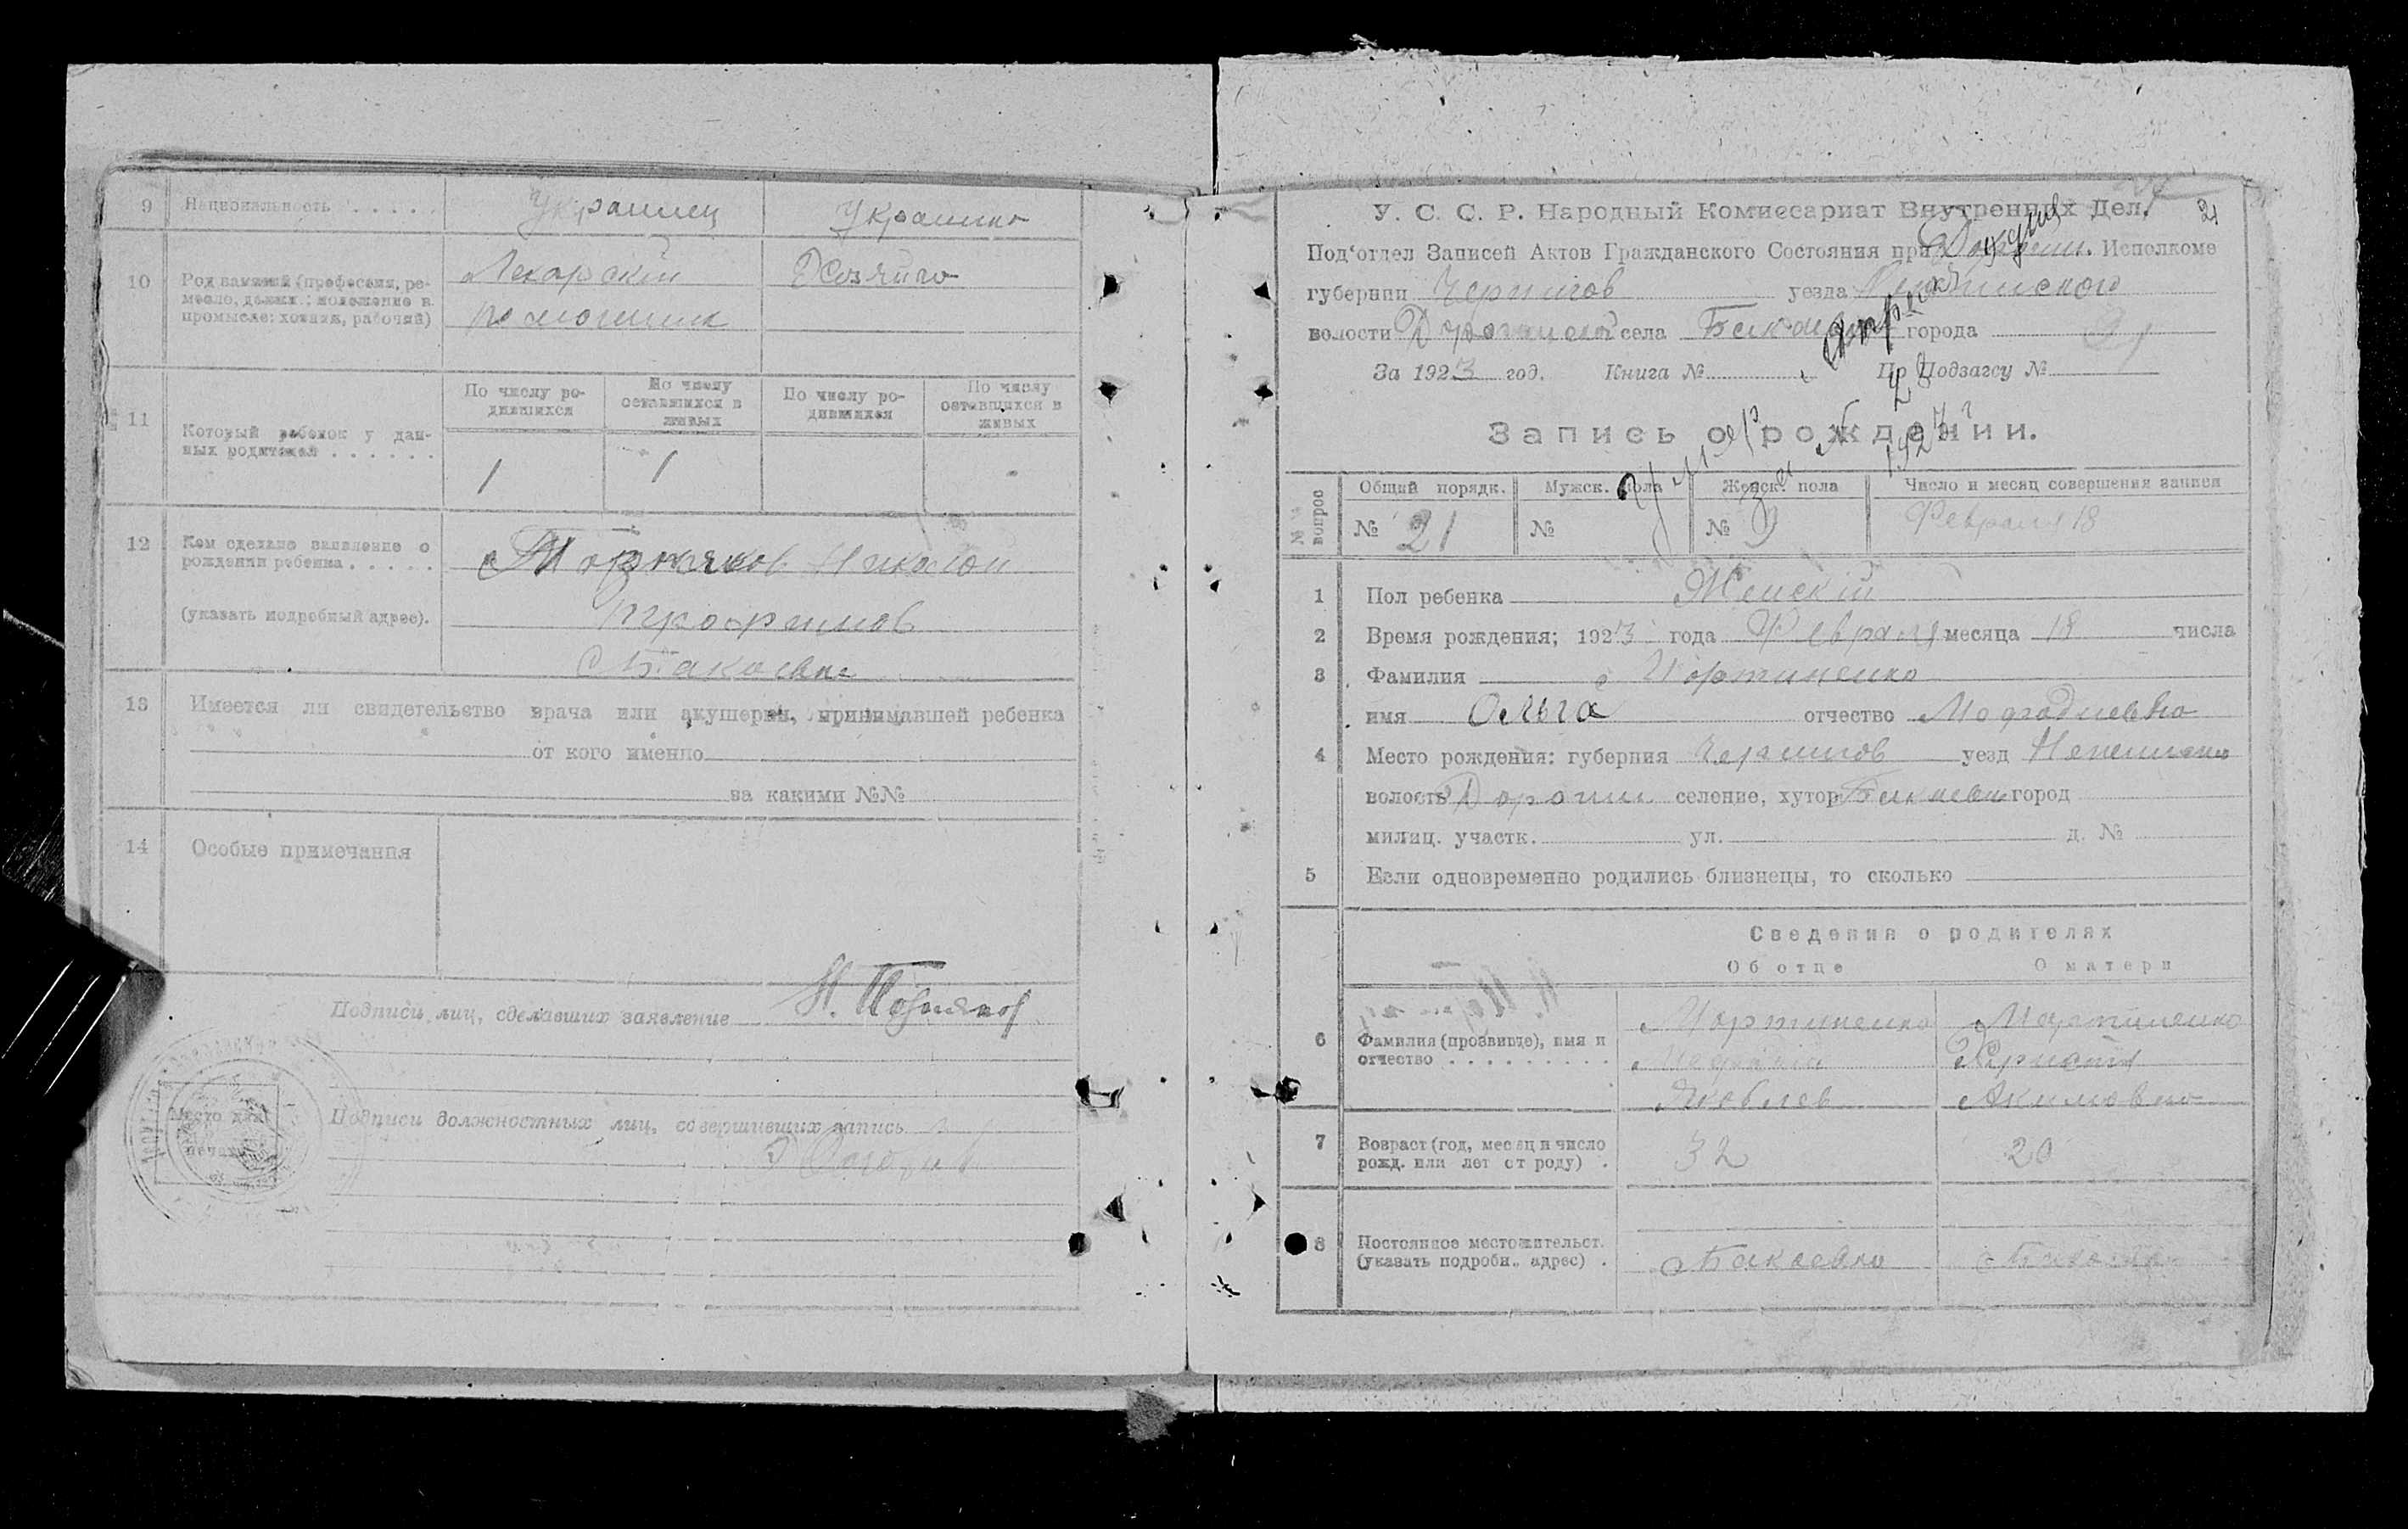 9 Национальность . . . . . Украинец Украинка
10 Род занятий (професия, ре-
месло, должн.; положение в
промысле: хозяин, рабочий)
Лекарскій Хозяйка
помощник
11 Который ребенок у дан-
ных родителей . . . . . .
По числу ро-
дившихся
По числу
оставшихся в
живых
По числу ро-
дившихся
По числу
оставшихся в
живых
1 1
12 Кем сделано заявление о
рождении ребенка . . . . .
(указать подробный адрес).
Позняков Николай
Трофимов
13 Имеется ли свидетельство врача или акушерки, принимавшей ребенка
от кого именно
за какими №№
14 Особые примечания
Подписи лиц, сделавших заявление Н. Позняков
Место для
печати
Подписи должностных лиц, совершивших запись
У. С. С. Р. Народный Комиссариат Внутренних Дел. 21
Под'отдел Записей Актов Гражданского Состояния при Исполкоме
губернии Чернигов уезда
волости Дорогинской села города
За 1923 год. Книга № По Подзагсу №
Запись о рождении.
№№ вопрос
Общий порядк. Мужск. пола Женск. пола Число и месяц совершения записи
№ 21 № № 9 Февраля 18
1 Пол ребенка Женскій
2 Время рождения; 1923 года Февраля месяца 18 числа
3 Фамилия Мартиненко
имя Ольга отчество
4 Место рождения: губерния Чернигов уезд
волость Дорогин селение, хутор город
милиц. участк. ул. д. №
5 Если одновременно родились близнецы, то сколько
Сведения о родителях
Об отце О матери
6 Фамилия (прозвище), имя и
отчество . . . . . . . . .
Мартиненко Мартиненко
Яковлев Акимовна
7 Возраст (год, месяц и число
рожд. или лет от роду) .
32 20
8 Постоянное местожительст.
(указать подробн. адрес) .